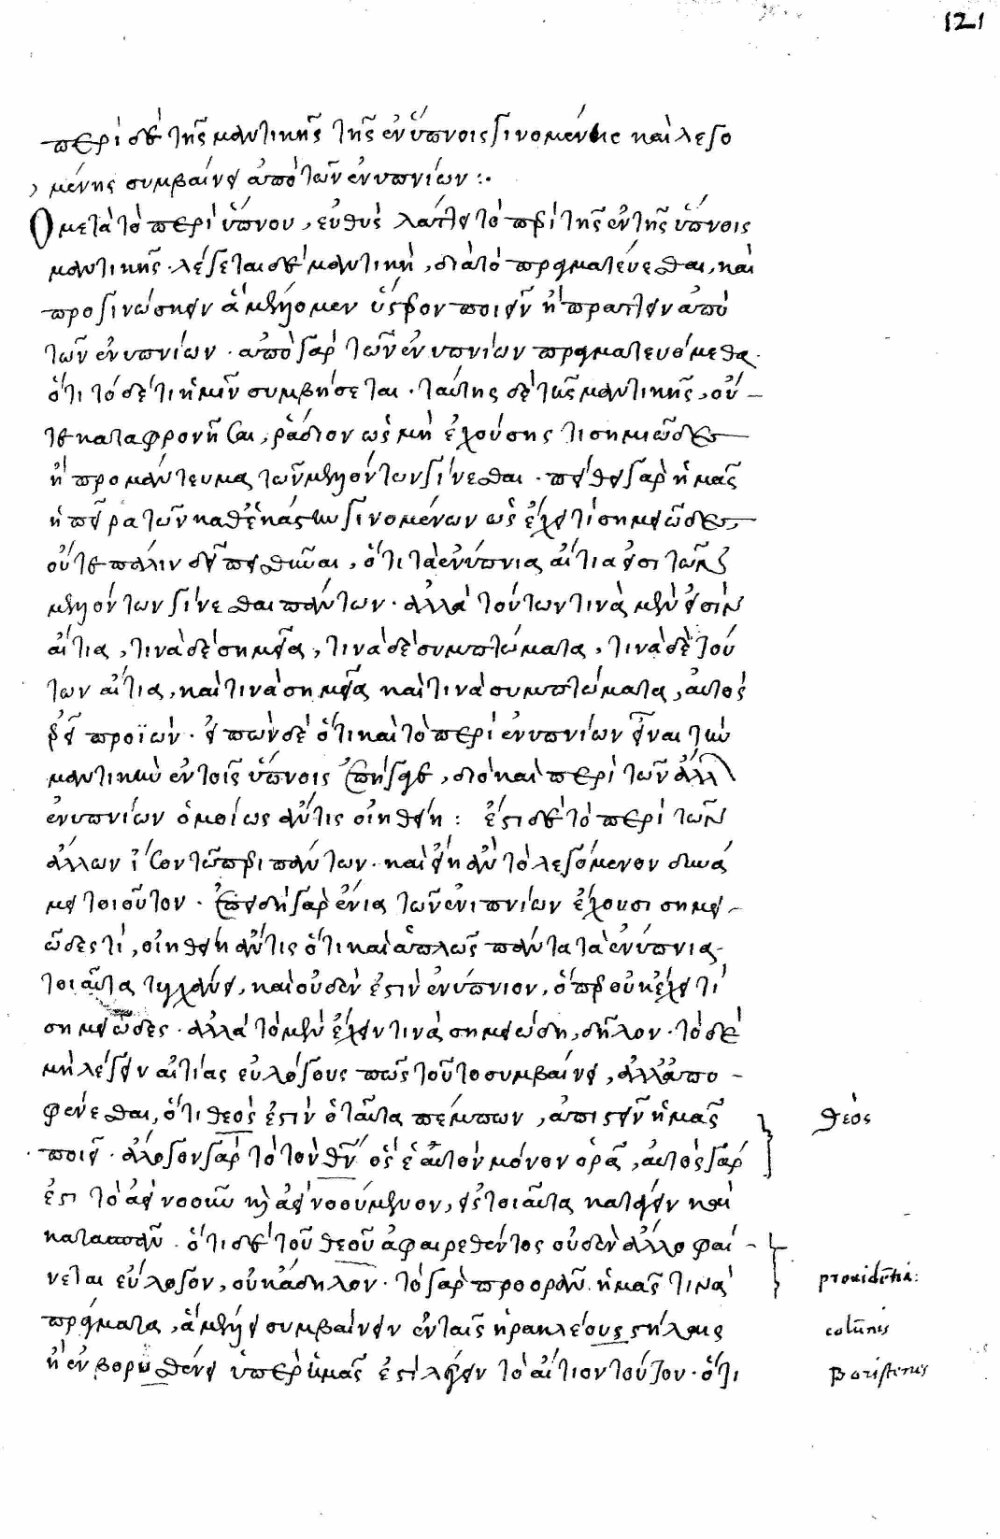 121
περὶ δὲ τῆς μαντικῆς τῆς ἐν ὕπνοις γινομένης καὶ λεγο
μένης συμβαίνει ἀπὸ τῶν ἐνυπνίων :·
Ὁ μετὰ τὸ περὶ ὕπνου, εὐθὺς λάπτει τὸ περὶ τῆς ἐν τῆς ὕπνοις
μαντικῆς · λέγεται δὲ μαντικὴ, διὰ τὸ πραγματεύεσθαι, καὶ
προγινώσκειν ἃ μέλλομεν ὕστερον ποιεῖν ἢ πράττειν ἀπὸ
τῶν ἐνυπνίων · ἀπὸ γὰρ τῶν ἐνυπνίων πραγματευόμεθα
ὅτι τόδέ τι ἡμῖν συμβήσεται · ταύτης δὲ τῆς μαντικῆς, οὔ
τε καταφρονῆσαι, ῥάδιον ὡς μὴ ἐχούσης τι σημιῶδες
ἢ προμάντευμα τῶν μελλόντων γίνεσθαι · πείθει γὰρ ἡμᾶς
ἡ πεῖρα τῶν καθ' ἑκάστω γινομένων ὡς ἔχει τὶ σημειῶδες,
οὔτε πάλιν δεῖ πεισθῆναι, ὅτι τὰ ἐνύπνια, αἴτια εἰσι τῶν
μελλόντων γίνεσθαι πάντων · ἀλλὰ τούτων τινὰ μὲν εἰσὶν
αἴτια, τινὰ δὲ σημεῖα, τινὰ δὲ συμπτώματα, τινὰ δὲ τού
των αἴτια, καὶ τινὰ σημεῖα καὶ τινὰ συμπτώματα, αὐτὸς
ἐρεῖ προϊών · εἰπὼν δὲ ὅτι καὶ τὸ περὶ ἐνυπνίων εἶναι τὴν
μαντικὴν ἐν τοῖς ὕπνοις ἐπήγαγε, διὸ καὶ περὶ τῶν ἄλλων
ἐνυπνίων ὁμοίως ἄν τις οἰηθείη : ἔστι δὲ τὸ περὶ τῶν
ἄλλων ἴσον τῶ περὶ πάντων · καὶ εἴη ἂν τὸ λεγόμενον δυνά
μει τοιοῦτον · ἐπειδὴ γὰρ ἔνια τῶν ἐνιπνίων ἔχουσι σημει
ῶδες τί, οἰηθείη ἄν τις ὅτι καὶ ἁπλῶς πάντα τὰ ἐνύπνια
τοιαῦτα τυχάνει, καὶ οὐδὲν ἐστὶν ἐνύπνιον, ὅπερ οὐκ ἔχει τὶ
σημειῶδες · ἀλλὰ τὸ μὲν ἔχειν τινὰ σημειώδη, δῆλον · τὸ δὲ
μὴ λέγειν αἰτίας εὐλόγους πῶς τοῦτο συμβαίνει, ἀλλ' ἀπο
φαίνεσθαι, ὅτι θεὸς ἐστὶν ὁ ταῦτα πέμπων, ἀπιστεῖν ἡμᾶς
ποιεῖ · ἄλογον γὰρ τὸ τὸν θν ὃς ἑαυτὸν μόνον ὁρᾶ, αὐτὸς γάρ
ἐστι τὸ ἀεὶ νοοῦν καὶ ἀεὶ νοούμενον, εἰς τοιαῦτα κατάγειν καὶ
κατασπᾶν · ὅτι δὲ τοῦ θεοῦ ἀφαιρεθέντος οὐδὲν ἄλλο φαί
νεται εὔλογον, οὐκ ἄδηλον · τὸ γὰρ προορᾶν ἡμᾶς τινὰ
πράγματα, ἃ μέλλει συμβαίνειν ἐν ταῖς ἡρακλείους στήλαις
ἢ ἐν βορυσθένει ὑπὲρ ἡμᾶς ἐστὶ λέγειν τὸ αἴτιον τούτου · ὅτι
θεός
prouidētia:
colūnis
Boristenis